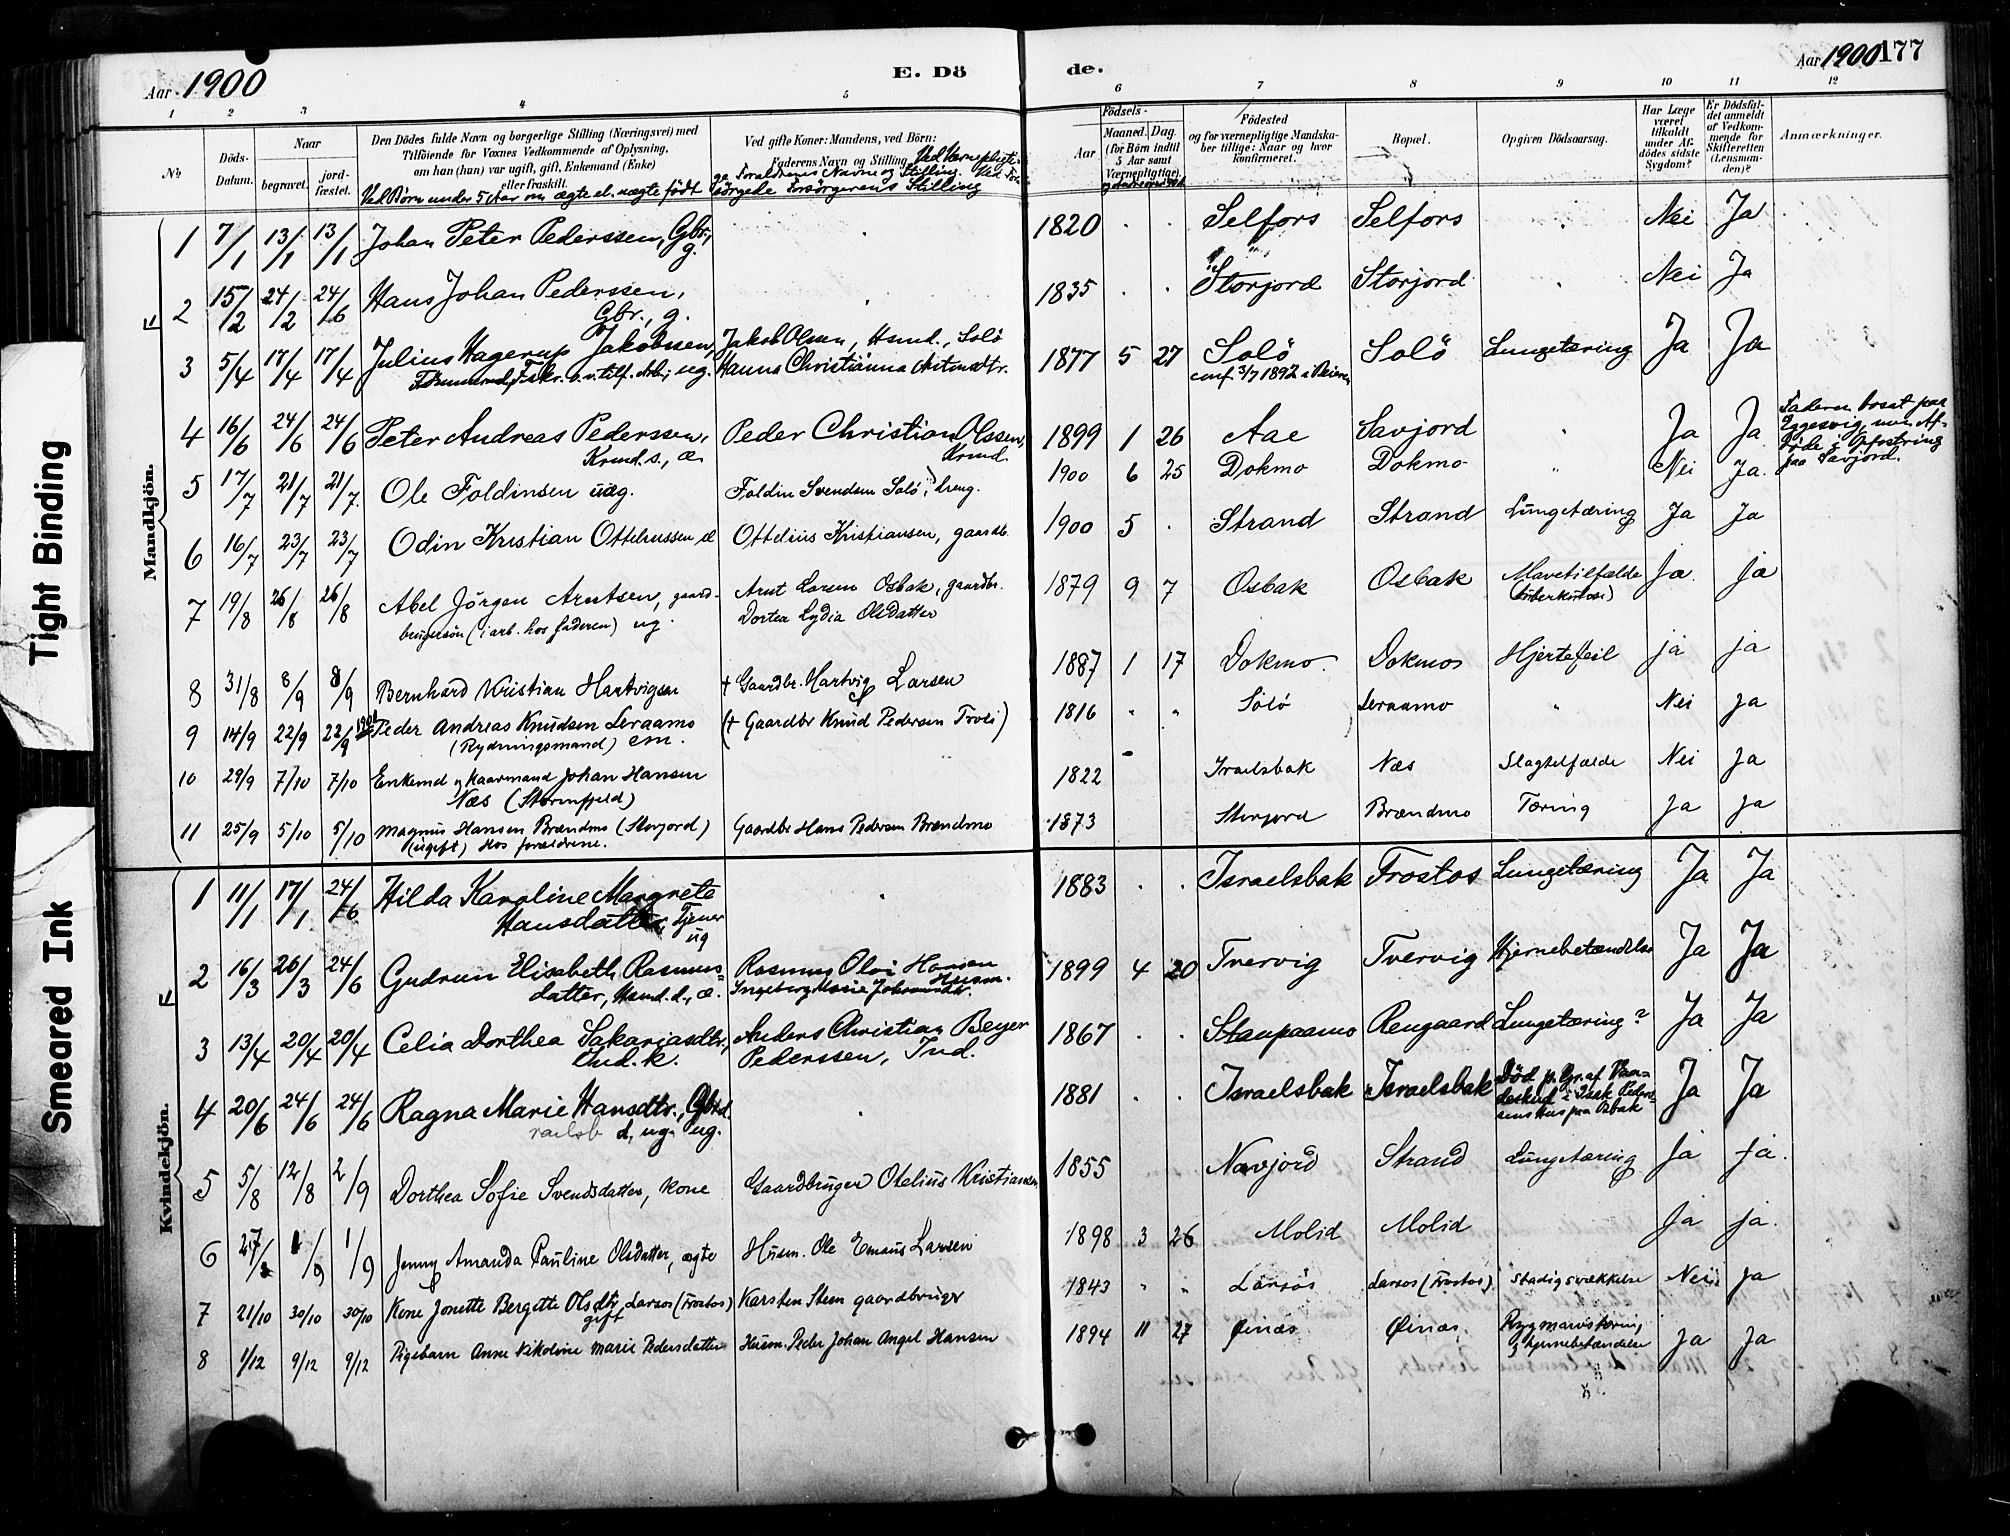 Aar 1900
E. Dö
de.
Aar 1900
177
1 2 3 4 5 6 7 8 9 10 11 12
No
Döds-Datum.
Naar
begravet.
jord-fæstet.
Den Dödes fulde Navn og borgerlige Stilling (Næringsvei) med
Tilföiende for Voxnes Vedkommende af Oplysning,
om han (hun) var ugift, gift, Enkemand (Enke)
eller fraskilt.
Ved Börn under 5 Aar om ægte el. uægte födt
Ved gifte Koner: Mandens, ved Börn:
Faderens Navn og Stilling. Ved Værnepligti-
ge Forældrenes Navne og Stilling. Ved For-
sörgede Forsörgerens Stilling
Födsels-
Aar
Maaned. Dag.
(for Börn indtil
5 Aar samt
Værnepligtige)
Födested
og for værnepligtige Mandska-
ber tillige: Naar og hvor
konfirmeret.
Bopæl.
Opgiven Dödsaarsag.
Har Læge
været
tilkaldt
under Af-
dödes sidste
Sygdom?
Er Dödsfal-
det anmeldt
af Vedkom-
mende for
Skifteretten
(Lensman-
den)?
Anmærkninger.
Mandkjön.
1 7/1 13/1 13/1 Johan Peter Pederssen, Gbr., g. 1820 Selfors Selfors Nei Ja
2 15/2 24/2 24/6 Hans Johan Pederssen, Gbr., g. 1835 Storjord Storjord Nei Ja
3 5/4 17/4 17/4 Julius Hagerup Jakobssen, Jakob Olsen, Hsmd., Solö 1877 5 27 Solö Solö Lungetæring Ja Ja
ug. Hanna Christianna Antonsdtr. conf. 3/7 1892 i Beiern
4 16/6 24/6 24/6 Peter Andreas Pederssen, Peder Christian Olssen, 1899 1 26 Aae Savjord Ja Ja Faderen bosat paa
Krmd. s., æ. Krmd. Eggesvig, men Af-
döde i Opfostring
paa Savjord.
5 17/7 21/7 21/7 Ole Foldinsen uæg. Foldin Svendsen Solö, dreng. 1900 6 25 Dokmo Dokmo Nei Ja.
6 16/7 23/7 23/7 Odin Kristian Otteliussen æ Ottelius Kristiansen, gaardb. 1900 5 Strand Strand Lungetæring Ja Ja
7 19/8 26/8 26/8 Abel Jörgen Arntsen, gaard- Arnt Larsen Osbak, gaardbr. 1879 9 7 Osbak Osbak Mavetilfælde Ja ja
brugersön (i arb. hos faderen) ug. Dortea Lydia Olsdatter (tuberkulose)
8 31/8 8/9 8/9 Bernhard Kristian Hartvigsen + Gaardbr. Hartvig Larsen 1887 1 17 Dokmo Dokmo Hjertefeil ja ja
9 14/9 22/9 22/9 Peder Andreas Knudsen Leraamo (+ Gaardbr Knud Pedersen Troli) 1816 " " Solö Leraamo " Nei ja
(Rydningsmand) em.
10 29/9 7/10 7/10 Enkemd og kaarmand Johan Hansen 1822 Israelsbak Næs Slagtilfælde Nei ja
Næs (Stormfjeld)
11 25/9 5/10 5/10 Magnus Hansen Brændmo (Storjord) Gaardbr Hans Pedersen Brændmo 1873 Storjord Brændmo Tæring ja ja
(ugift) hos forældrene.
Kvindekjön.
1 11/1 17/1 24/6 Hilda Karoline Margrete 1883 Israelsbak Frostos Lungetæring Ja Ja
Hansdatter, Tjener
ug
2 16/3 26/3 24/6 Gudrun Elisabeth Rasmus- Rasmus Olai Hansen 1899 4 20 Tvervig Tvervig Hjernebetændelse Ja Ja
datter, Hsmd. d., æ. Husm.
3 13/4 20/4 20/4 Celia Dorthea Sakariasdtr., Anders Christian Beyer 1867 Staupaamo Rengaard Lungetæring? Ja Ja
Ind. k. Pederssen, Ind.
4 20/6 24/6 24/6 Ragna Marie Hansdtr., Gbrd. 1881 Israelsbak Israelsbak Död p. Gr. af Vaa- Ja Ja
d. ug. ug. deskud i Isak Peder-
sens Hus paa Osbak
5 5/8 12/8 2/9 Dorthea Sofie Svendsdatter, kone Gaardbruger Otelius Kristiansen 1855 Navjord Strand Lungetæring ja ja.
6 27/8 1/9 1/9 Jenny Amanda Pauline Olsdatter, ægte Husm. Ole Emaus Larsen 1898 3 26 Molid Molid ja ja.
7 21/10 30/10 30/10 Kone Jonette Bergette Olsdtr, Larsos (Frostos) Karsten Steen gaardbruger 1843 " " Larsos Larsos (Frostos) Stadig svækkelse Nei ja
gift
8 1/12 9/12 9/12 Pigebarn Anne Nikoline Marie Pedersdatter Husm. Peder Johan Angel Hansen 1894 11 27 Øinæs Øinæs. Rygmarvstæring ja ja
og hjernebetændelse
Tight Binding
Smeared Ink